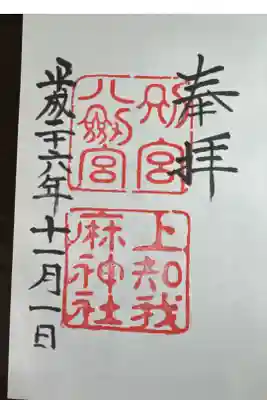 奉拝
別宮
八剱宮
上知我
麻神社
平成二十六年十一月一日